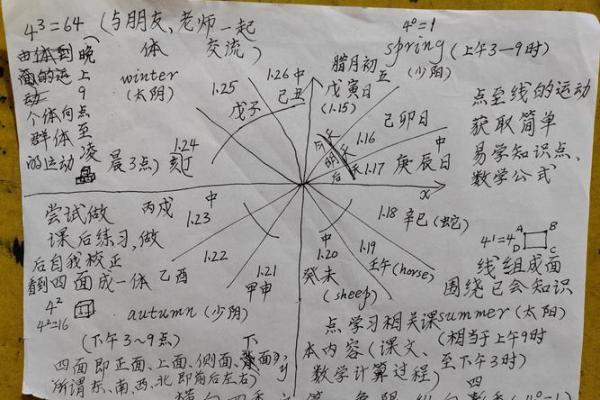 4³=64 (与朋友、老师一起
体 交流)
由体到
面的运
动
个体向
群体
的运动
晚
上
9
点
至
凌
晨3点)
winter
(太阴)
1.25
1.26 中
己丑
戊子
1.24
腊月初
戊寅日
(1.15)
4⁰=1
spring (上午3—9时)
(少阳)
1.16
己卯日
中
1.17
庚辰日
x
点至线的运动
获取简单
易学知识点、
数学公式
尝试做
课后练习,做
后自我校正
看到四面成一体
4²
4²=16
丙戌
中
1.23
1.22
乙酉
1.21
甲申
autumn (少阴)
(下午3~9点)
四面即正面、上面、侧面、
所谓东、南、西、北即前后左右)
中
1.20
癸未
(sheep)
1.19
壬午(horse)
1.18 辛巳(蛇)
4¹=4
A B
D C
线组成面
围绕已会知识
点学习相关课summer(太阳)
本内容(课文、
数学计算过程)
(相当于上午9时
至下午3时)
y
四